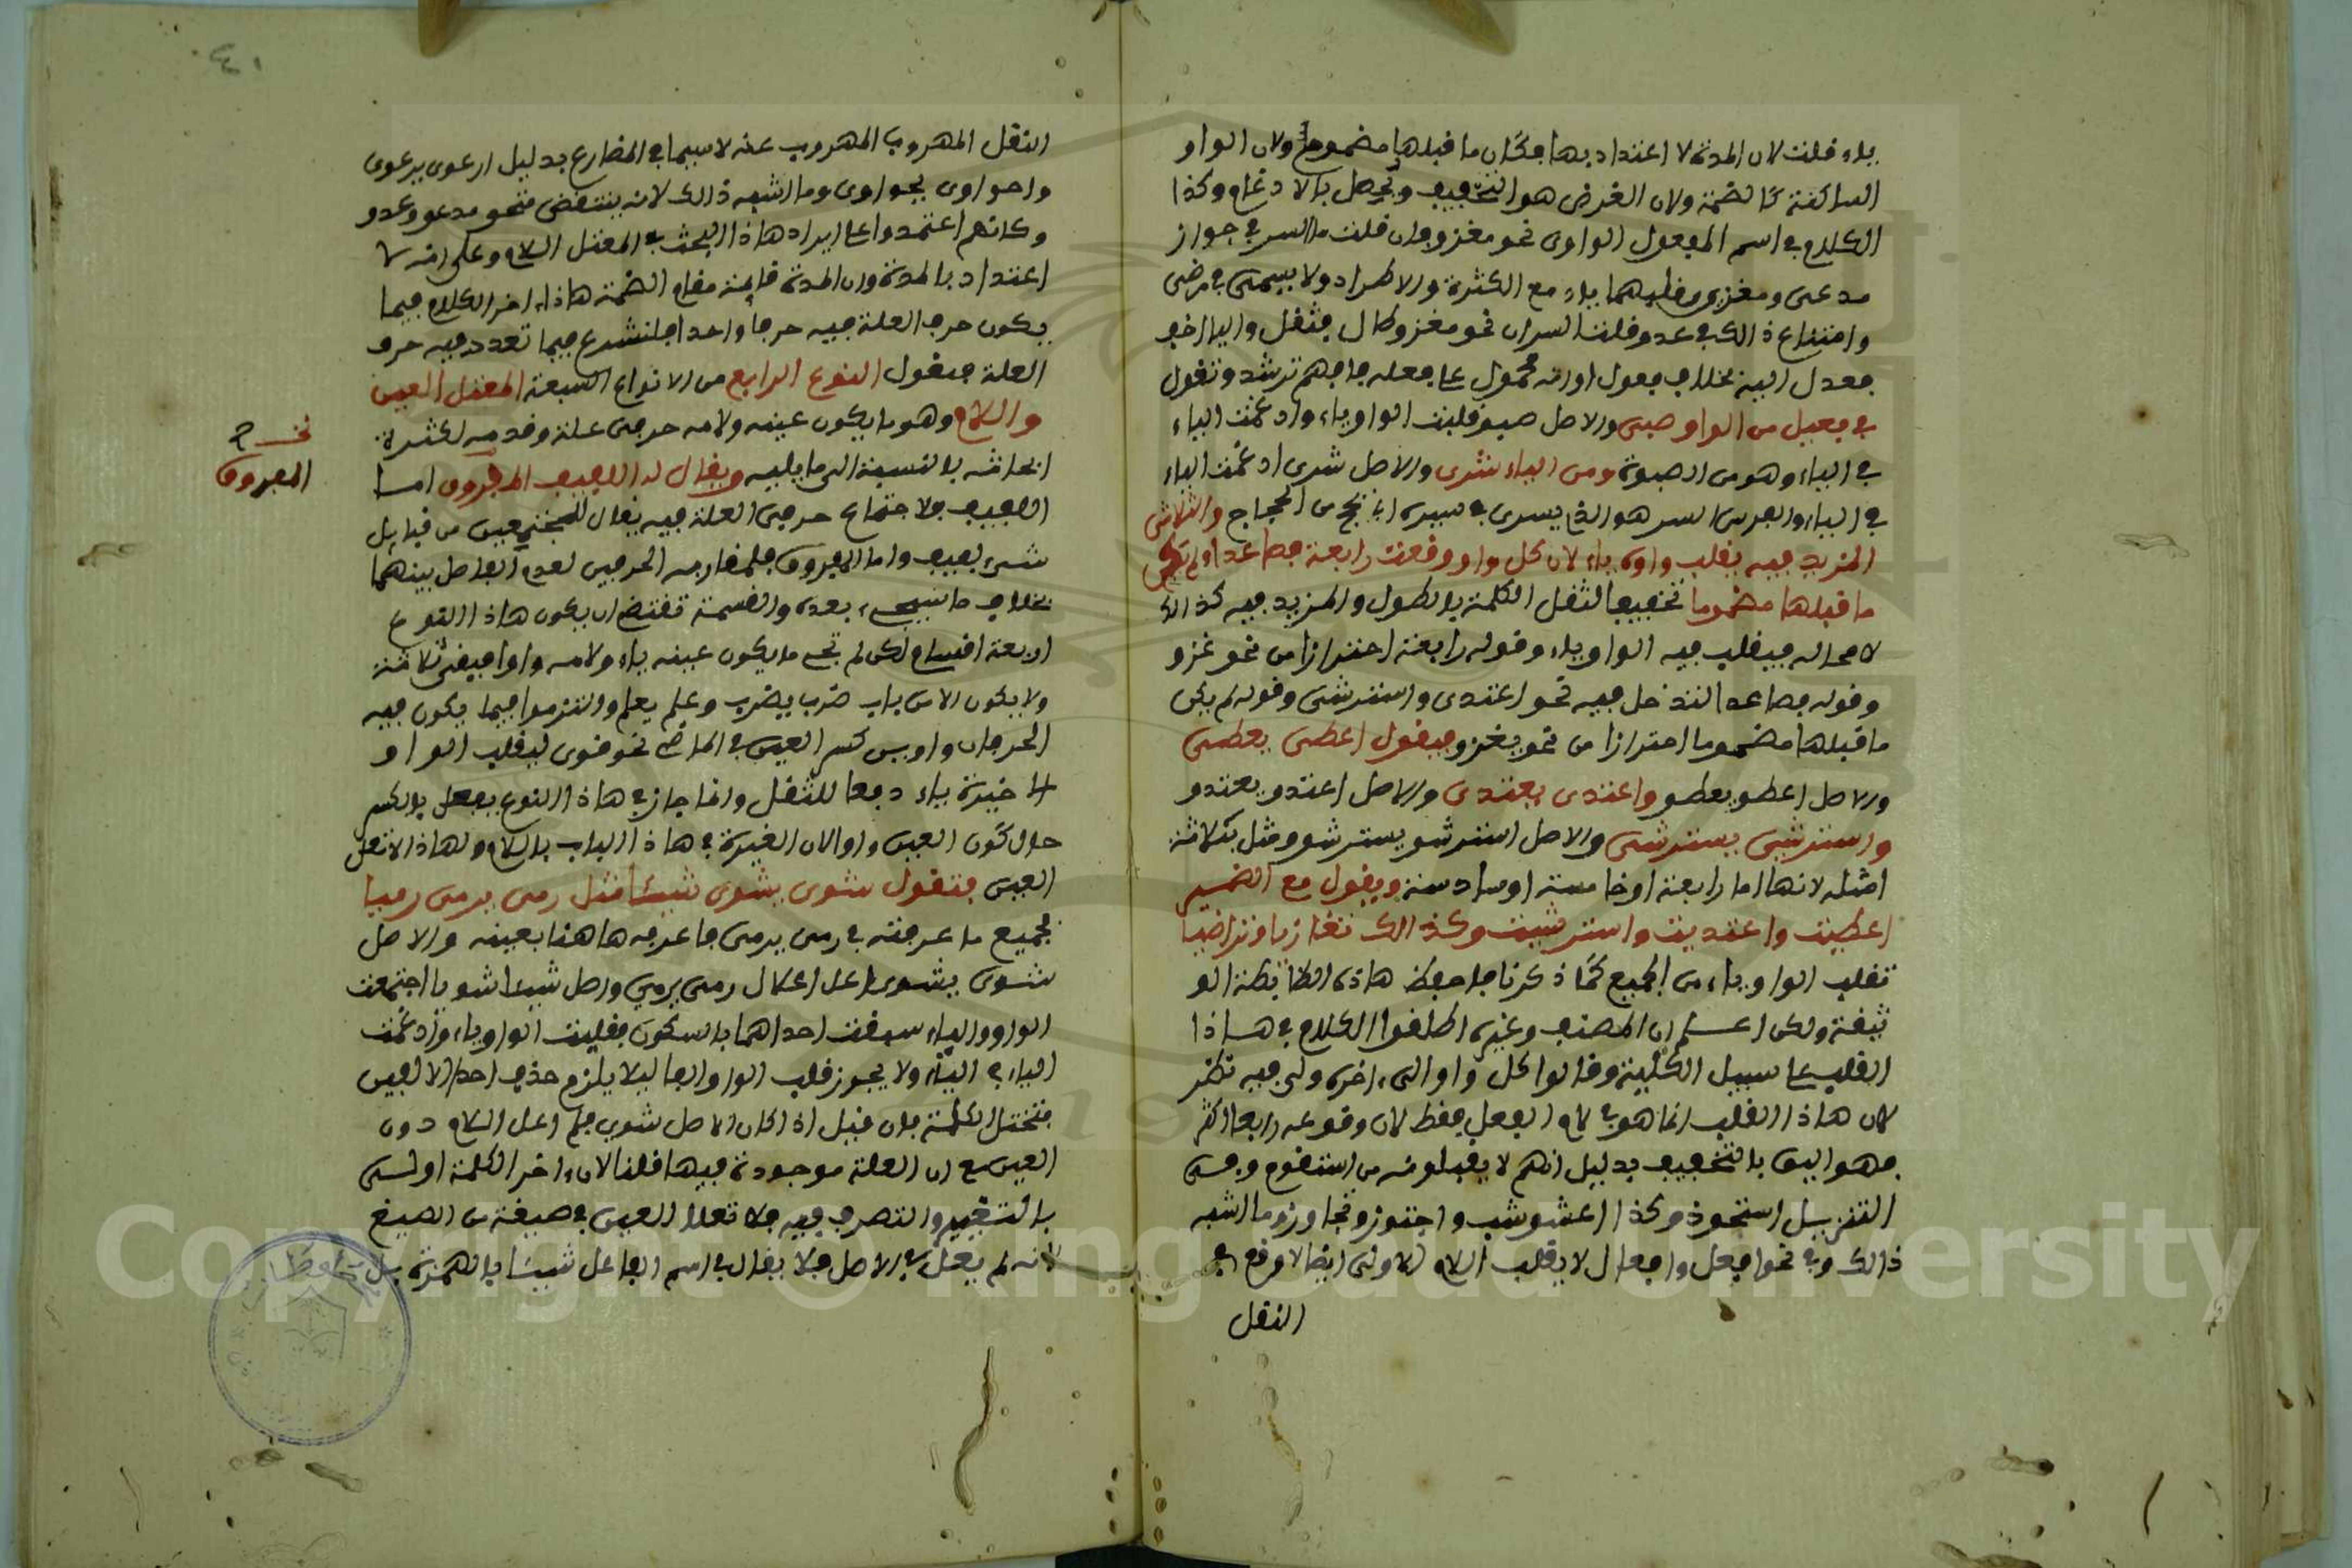 ياء قلت لان المدة لا اعتداد بها فكان ما قبلها مضموما ولان الواو
الساكنة كالضمة ولان الغرض هو التخفيف ويحصل بالادغام وكذا
الكلام في اسم المفعول الواوي نحو مغزو فان قلت ما السر في جواز
مدعى ومغزى وقلبهما ياء مع الكثرة والاطراد ولا سيما في مرضى
وامتناع ذالك في عدو قلت السر ان نحو مغزو طال فثقل والياء اخف
فعدل اليه بخلاف فعول او انه محمول على فعله فافهم ترشد وتقول
في فعيل من الواو صبى والاصل صبيو قلبت الواو ياء وادغمت الياء
في الياء وهو من الصبوة ومن الياء شرى والاصل شريى ادغمت الياء
في الياء والفرس السر هو الذي يسرى في سيره اي يلج من اللجاج والثلاثي
المزيد فيه يقلب واوه ياء لان كل واو وقعت رابعة فصاعدا ولم يكن
ما قبلها مضموما تخفيفا لثقل الكلمة بالطول والمزيد فيه كذالك
لا محالة فيقلب فيه الواو ياء وقوله رابعة احترازا من نحو غزو
وقوله فصاعدا لتدخل فيه نحو اعتدى واسترشى وقوله لم يكن
ما قبلها مضموما احترازا من نحو يغزو فيقول اعطى يعطى
والاصل اعطو يعطو واعتدى يعتدى والاصل اعتدو يعتدو
واسترشى يسترشى والاصل استرشو يسترشو ومثل بثلاثة
امثلة لانها اما رابعة او خامسة او سادسة ويقول مع الضمير
اعطيت واعتديت واسترشيت وكذالك تغازيا وتراضيا
تقلب الواو ياء من الجميع كما ذكرنا فاحفظ هاذه الضابطة الو
ثيقة ولكن اعلم ان المصنف وغيره اطلقوا الكلام في هاذا
القلب على سبيل الكلية وقالوا كل واو الى اخره ولي فيه نظر
لان هاذا القلب انما هو في لام الفعل فقط لان وقوعه رابعا اكثر
فهو اليق بالتخفيف بدليل انهم لا يقبلونه من استقوم وفى
التنزيل استحوذ وكذا اعشوشب واجتوز وتجاوز وما اشبه
ذالك وفي نحو افعل وافعال لا يقلب اللام الاولى ايضا لا وقع في
الثقل
الثقل المهروب المهروب عنه لا سيما في المضارع بدليل ارعوى يرعوى
واحواوى يحواوى وما اشبه ذالك لانه ينتقض بنحو مدعو وعدو
وكانهم اعتمدوا على ايراد هاذا البحث في المعتل اللام وعلى انه لا
اعتداد بالمدة وان المدة قايمة مقام الضمة هاذا اخر الكلام فيما
يكون حرف العلة فيه حرفا واحدا فلنشرع فيما تعدد فيه حرف
العلة فنقول النوع الرابع من الانواع السبعة المعتل العين
واللام وهو ما يكون عينه ولامه حرفى علة وقدمه لكثرة
ابحاثه بالنسبة الى ما يليه ويقال له اللفيف المقرون اما
اللفيف فلاجتماع حرفى العلة فيه يقال للمجتمعين من قبايل
شتى لفيف واما المقرون فلمقارنة الحرفين لعدم الفاصل بينهما
بخلاف ما سيجىء بعده والقسمة تقتضي ان يكون هاذا النوع
اربعة اقسام لكن لم يجىء ما يكون عينه ياء ولامه واوا فبقي ثلاثة
ولا يكون الا من باب ضرب يضرب وعلم يعلم والتزموا فيما يكون فيه
الحرفان واوين كسر العين في الماضي نحو قوى ليقلب الواو
الاخيرة ياء دفعا للثقل وانما جاز في هاذا النوع يفعل بالكسر
حال كون العين واوا لان العبرة في هاذا الباب باللام ولهاذا لا تعل
العين فتقول شوى يشوى شيا مثل رمى يرمى رميا
فجميع ما عرفته في رمى يرمى فاعرفه هاهنا بعينه والاصل
شوى يشوى اعل اعلال رمى يرمي واصل شيا شويا اجتمعت
الواو والياء سبقت احداهما بالسكون فقلبت الواو ياء وادغمت
الياء في الياء ولا يجوز قلب الواو الفا ليلا يلزم حذف احد الالفين
فتختل الكلمة فان قيل اذا كان الاصل شوى فلم اعل اللام دون
العين مع ان العلة موجودة فيها قلنا لان اخر الكلمة اولى
بالتغيير والتصرف فيه فلا تعل العين في صيغة من الصيغ
لانه لم يعل في الاصل فلا يقال في اسم الفاعل شيئا بالهمزة بل
نخـ
المفروق
٤١
Copyright © King Saud University